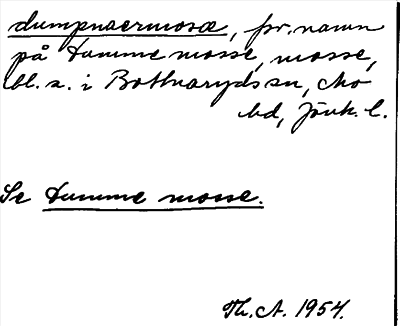 dumpnaermosæ, fr. namn
på Dumme mosse, mosse,
bl. a. i Bottnaryds sn, Mo
hd, Jönk. l.
Se Dumme mosse.
Th. A. 1954.